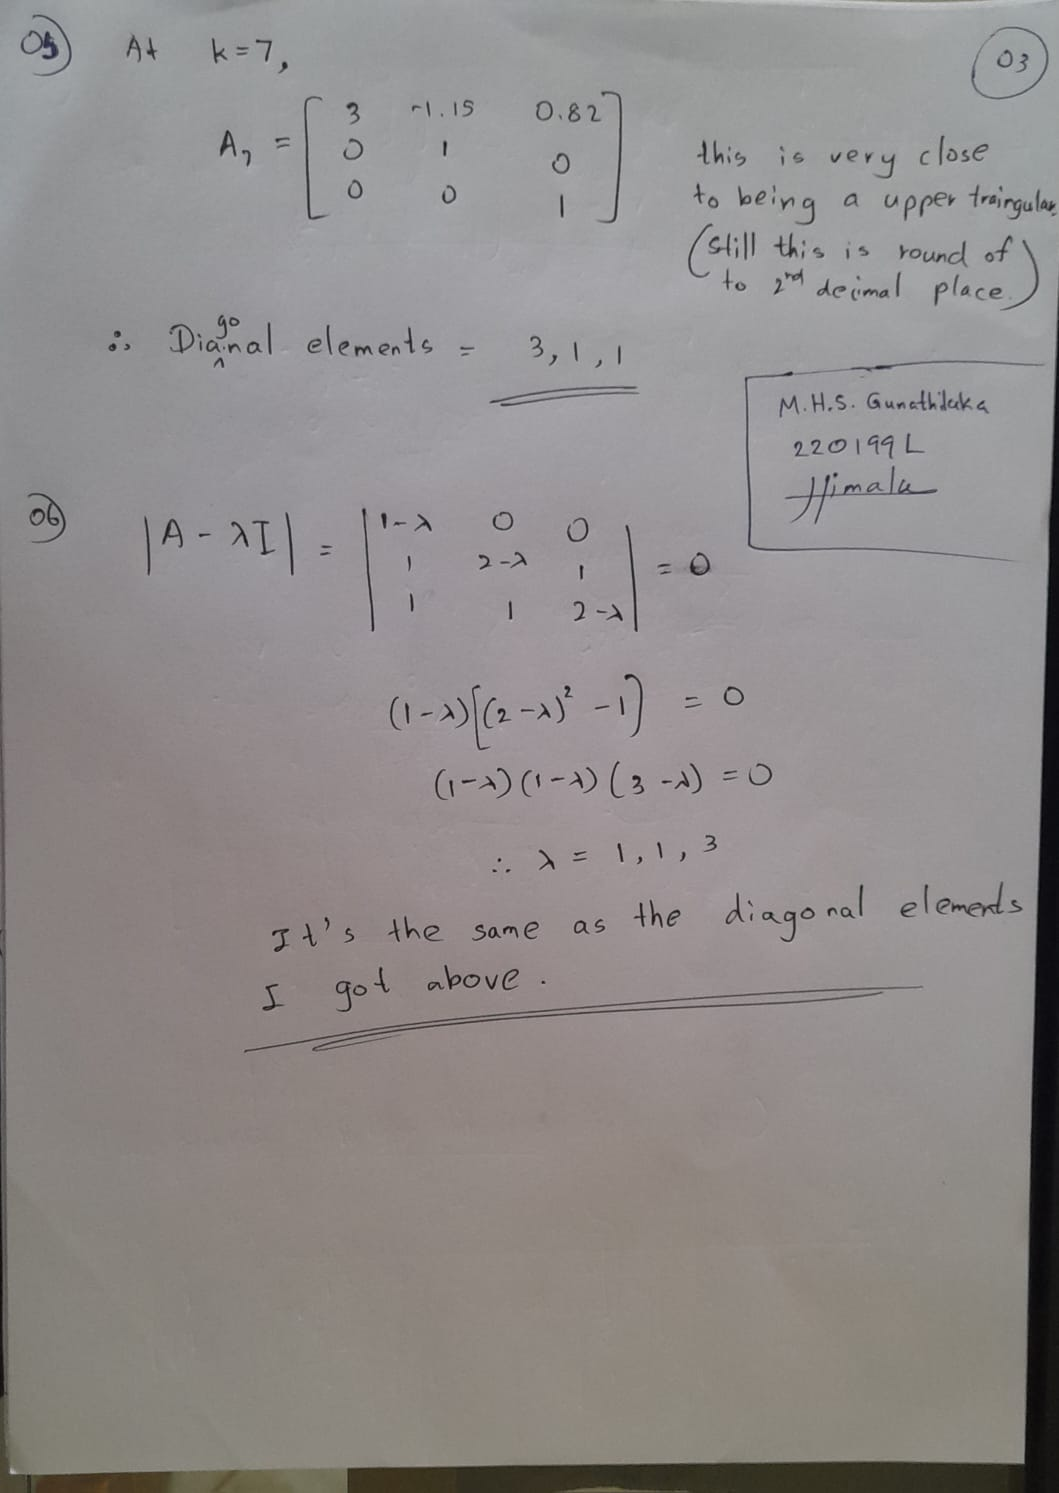 05 At k=7,
03
A₇ = [ 3 -1.15 0.82
0 1 0
0 0 1 ]
this is very close
to being a upper traingular.
(still this is round of
to 2nd decimal place.)
∴ Diagonal elements = 3, 1, 1
M.H.S. Gunathilaka
220199L
Himala
06 |A - λI| = | 1-λ 0 0
1 2-λ 1
1 1 2-λ | = 0
(1-λ)[(2-λ)² -1] = 0
(1-λ)(1-λ)(3-λ) = 0
∴ λ = 1, 1, 3
It's the same as the diagonal elements
I got above.